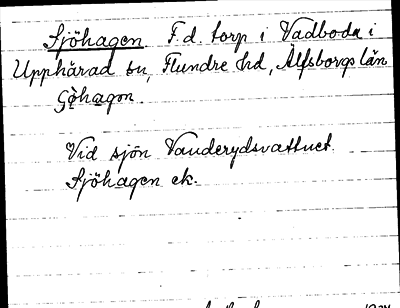 Sjöhagen F.d. torp i Vadboda i
Upphärad sn, Flundre hd, Älfsborgs län
Göhagon.
Vid sjön Vanderydsvattnet.
Sjöhagen ek.